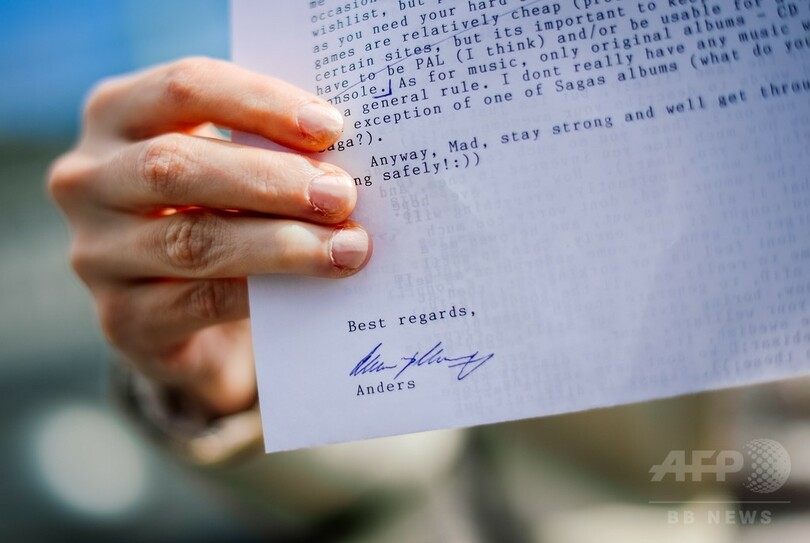 me
occasion
wishlist, but p
as you need your hard
games are relatively cheap
certain sites, but its important to keep
have to be PAL (I think) and/or be usable for
nsole. As for music, only original albums - CD
a general rule. I dont really have any music
exception of one of Sagas albums (what do you
aga?).
Anyway, Mad, stay strong and well get thro
ng safely!:))
Best regards,
Anders
AFP
BB NEWS